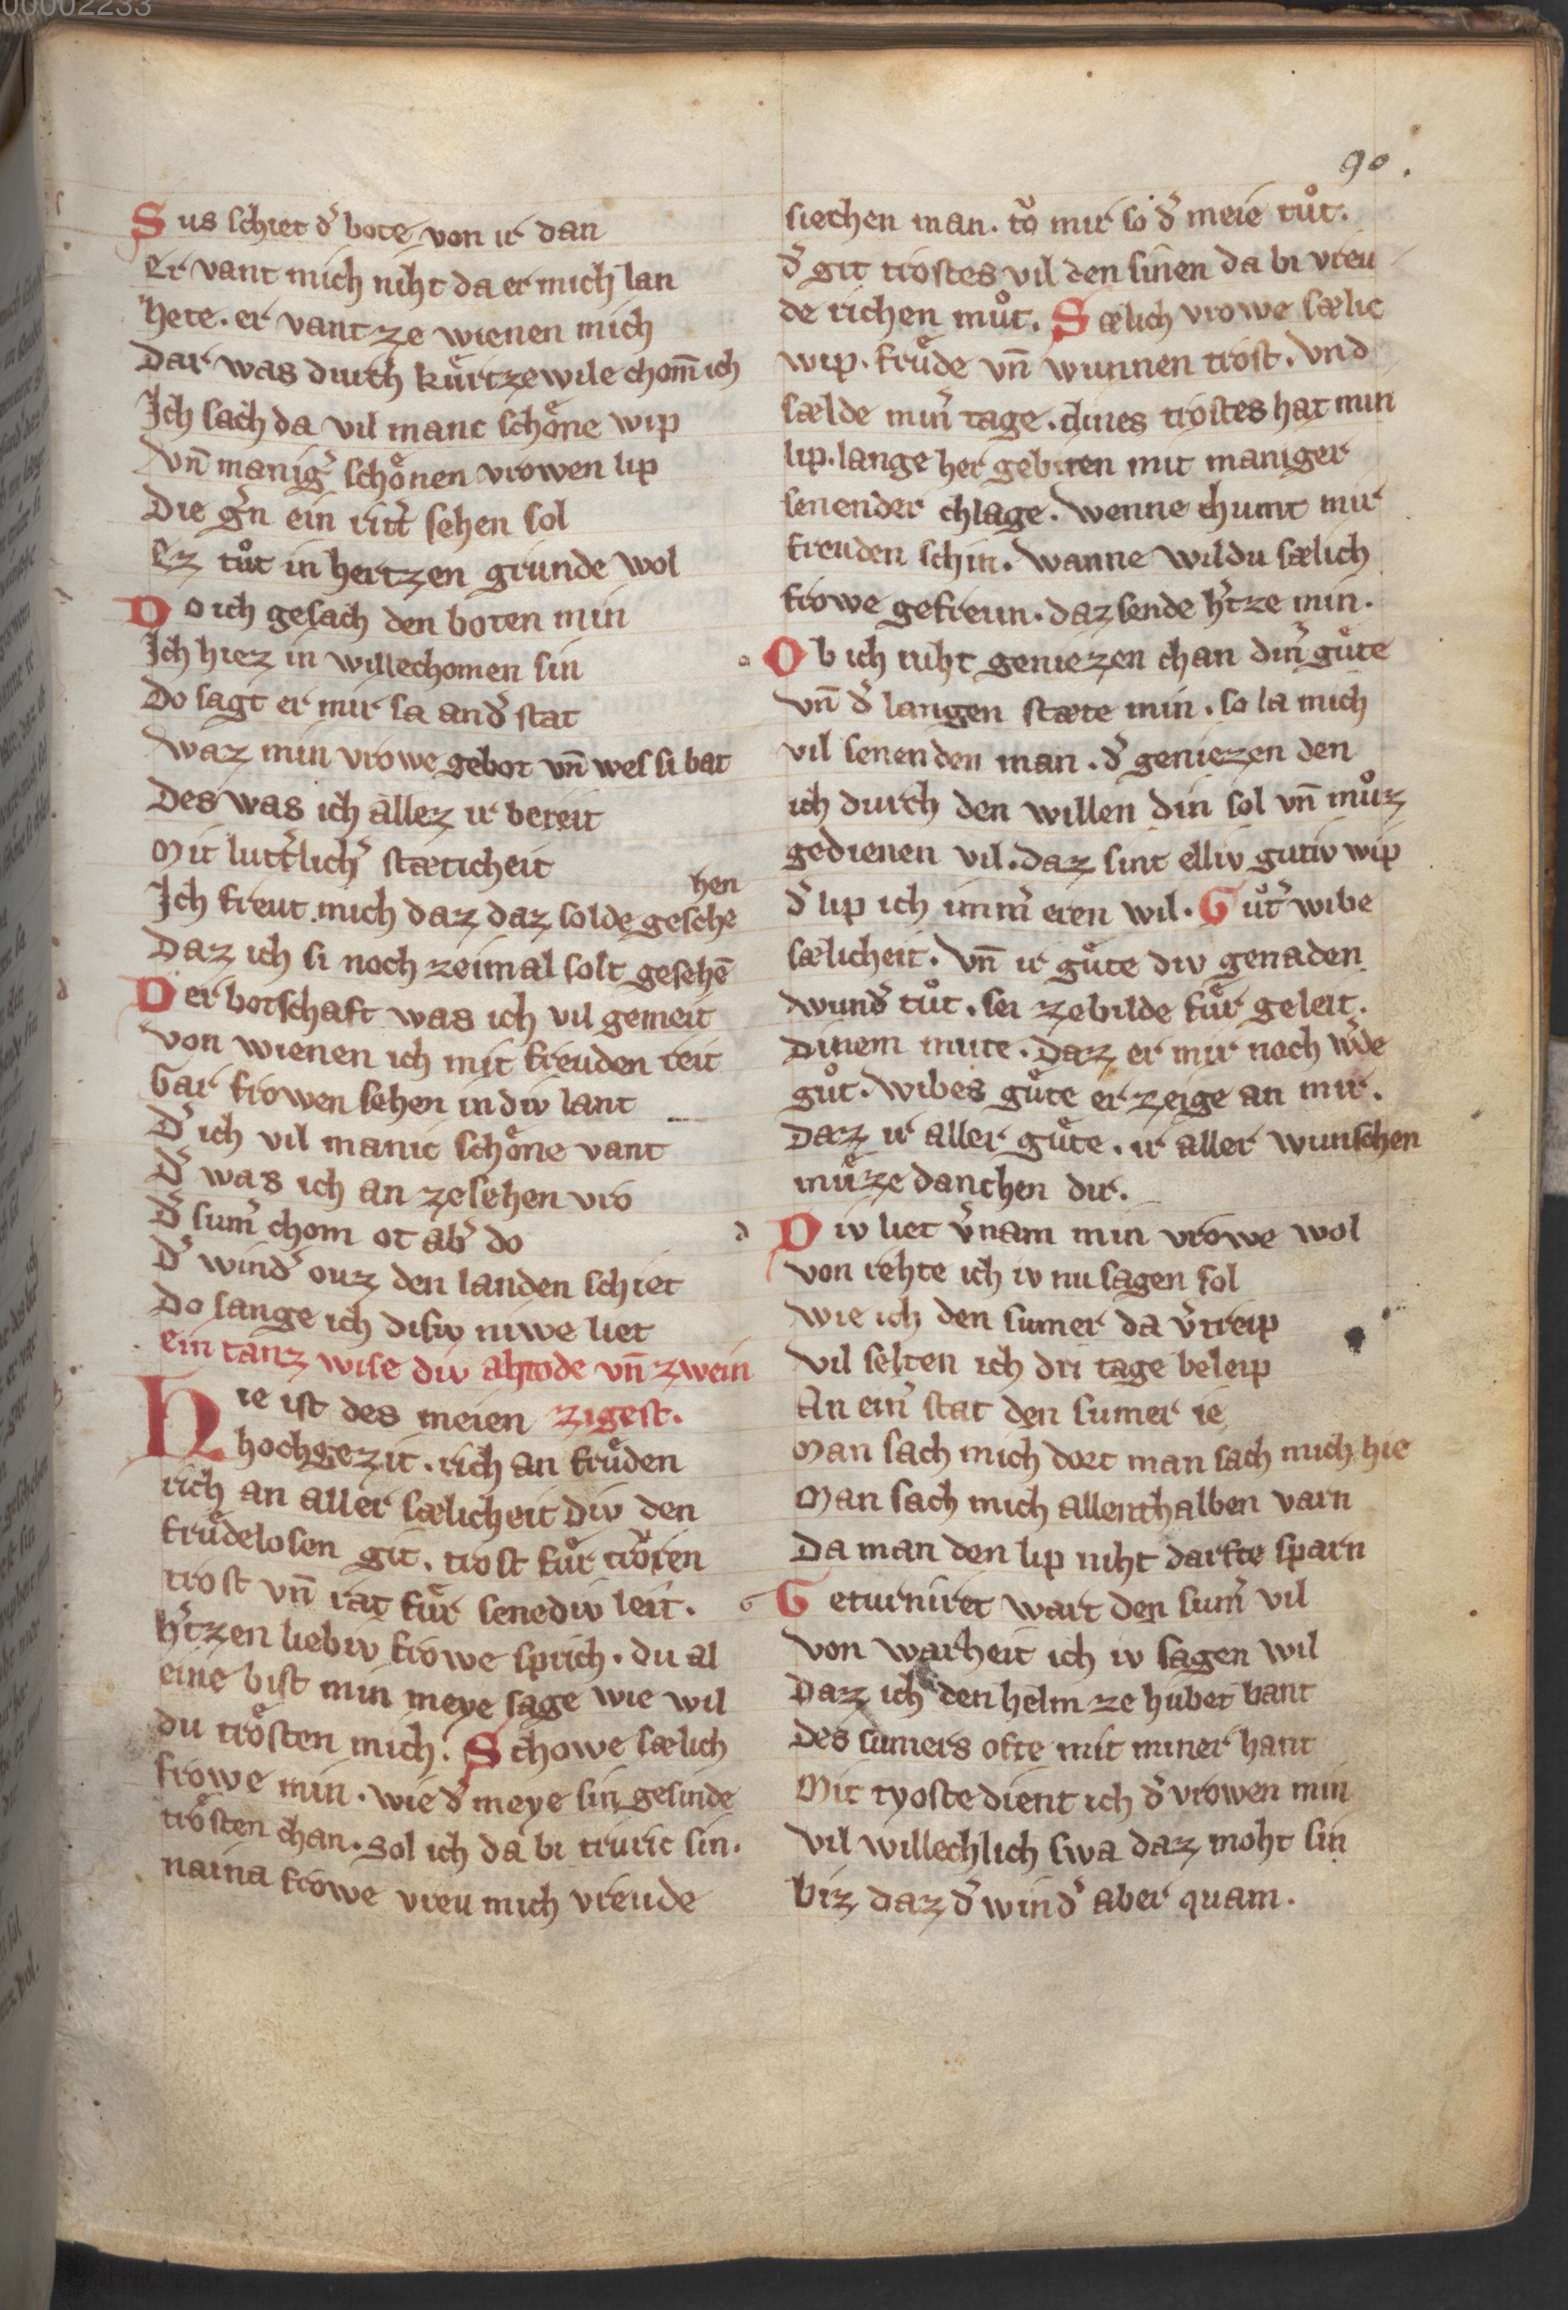 00002233
90.
Sus schiet d͛ bote von ir dan
Er vant mich niht da er mich lan
Hete. er vant ze wienen mich
Dar was durch kuͤrtzewile chom̄ ich
Ich sach da vil manc schoͤne wip
Vn̄ manig͛ schoͤnen vrowen lip
Die g͛n ein ritt͛ sehen sol
Ez tuͦt in hertzen grunde wol
Do ich gesach den boten min
Ich hiez in willechomen sin
Do sagt er mir sa and͛ stat
Waz min vrowe gebot vn̄ wes si bat
Des was ich allez ir bereit
Mit lutt͛lich͛ stæticheit
hen
Ich freut mich daz daz solde gesche
Daz ich si noch zeimal solt gesehē
Der botschaft was ich vil gemeit
Von wienen ich mit freuden reit
Gar frowen sehen in div lant
D͛ ich vil manic schoͤne vant
D͛ was ich an zesehen vro
D͛ sum͛ chom ot ab͛ do
D͛ wind͛ ouz den landen schiet
Do sange ich disiv niwe liet
ein tanz wise div ahtode vn̄ zwein
Hie ist des meien zigest.
hochgezit. rich an fruͤden
rich an aller sælicheit Div den
fruͤdelosen git. trost fuͤr trͦren
trost vn̄ rat fuͤr senediv leit.
h͛tzen liebiv frowe sprich. du al
eine bist min meye sage wie wil
du troͤsten mich. Schowe sælich
frowe min. wie d͛ meye sin gesinde
troͤsten chan. sol ich da bi truric sin.
naina frowe vreu mich vreude
siechen man. tͦ mir so d͛ meie tuͦt.
d͛ git trostes vil den sinen da bi vreu
de richen muͦt. Sælich vrowe sælic
wip. fruͤde vn̄ wunnen trost. vnd
sælde min͛ tage. dines trostes hat min
lip. lange her gebiten mit maniger
senender chlage. wenne chumt mir
freuden schin. wanne wildu sælich
frowe gefreun. daz sende h͛tze min.
Ob ich niht geniezen chan din͛ guͤte
vn̄ d͛ langen stæte min. so la mich
vil senenden man. d͛ geniezen den
ich durch den willen din sol vn̄ muͦz
gedienen vil. daz sint elliv gutiv wip
d͛ lip ich imm͛ eren wil. Guͦt͛ wibe
sælicheit. vn̄ ir guͤte div genaden
wund͛ tuͦt. sei zebilde fuͤr geleit.
dinem mute. daz er mir noch w͛de
guͦt. wibes guͤte erzeige an mir.
daz ir aller guͤte. ir aller wunschen
muͤze danchen dir.
Div liet v͛nam min vrowe wol
Von rehte ich iv nu sagen sol
Wie ich den sumer da v͛treip
Vil selten ich dri tage beleip
An ein͛ stat den sumer ie
Man sach mich dort man sach mich hie
Man sach mich allenthalben varn
Da man den lip niht darfte sparn
Geturniret wart den sum͛ vil
Von warheit ich iv sagen wil
Daz ich den helm ze hubet bant
Des sumers ofte mit miner hant
Mit tyoste dient ich d͛ vrowen min
Vil willechlich swa daz moht sin
Biz daz d͛ wind͛ aber quam.